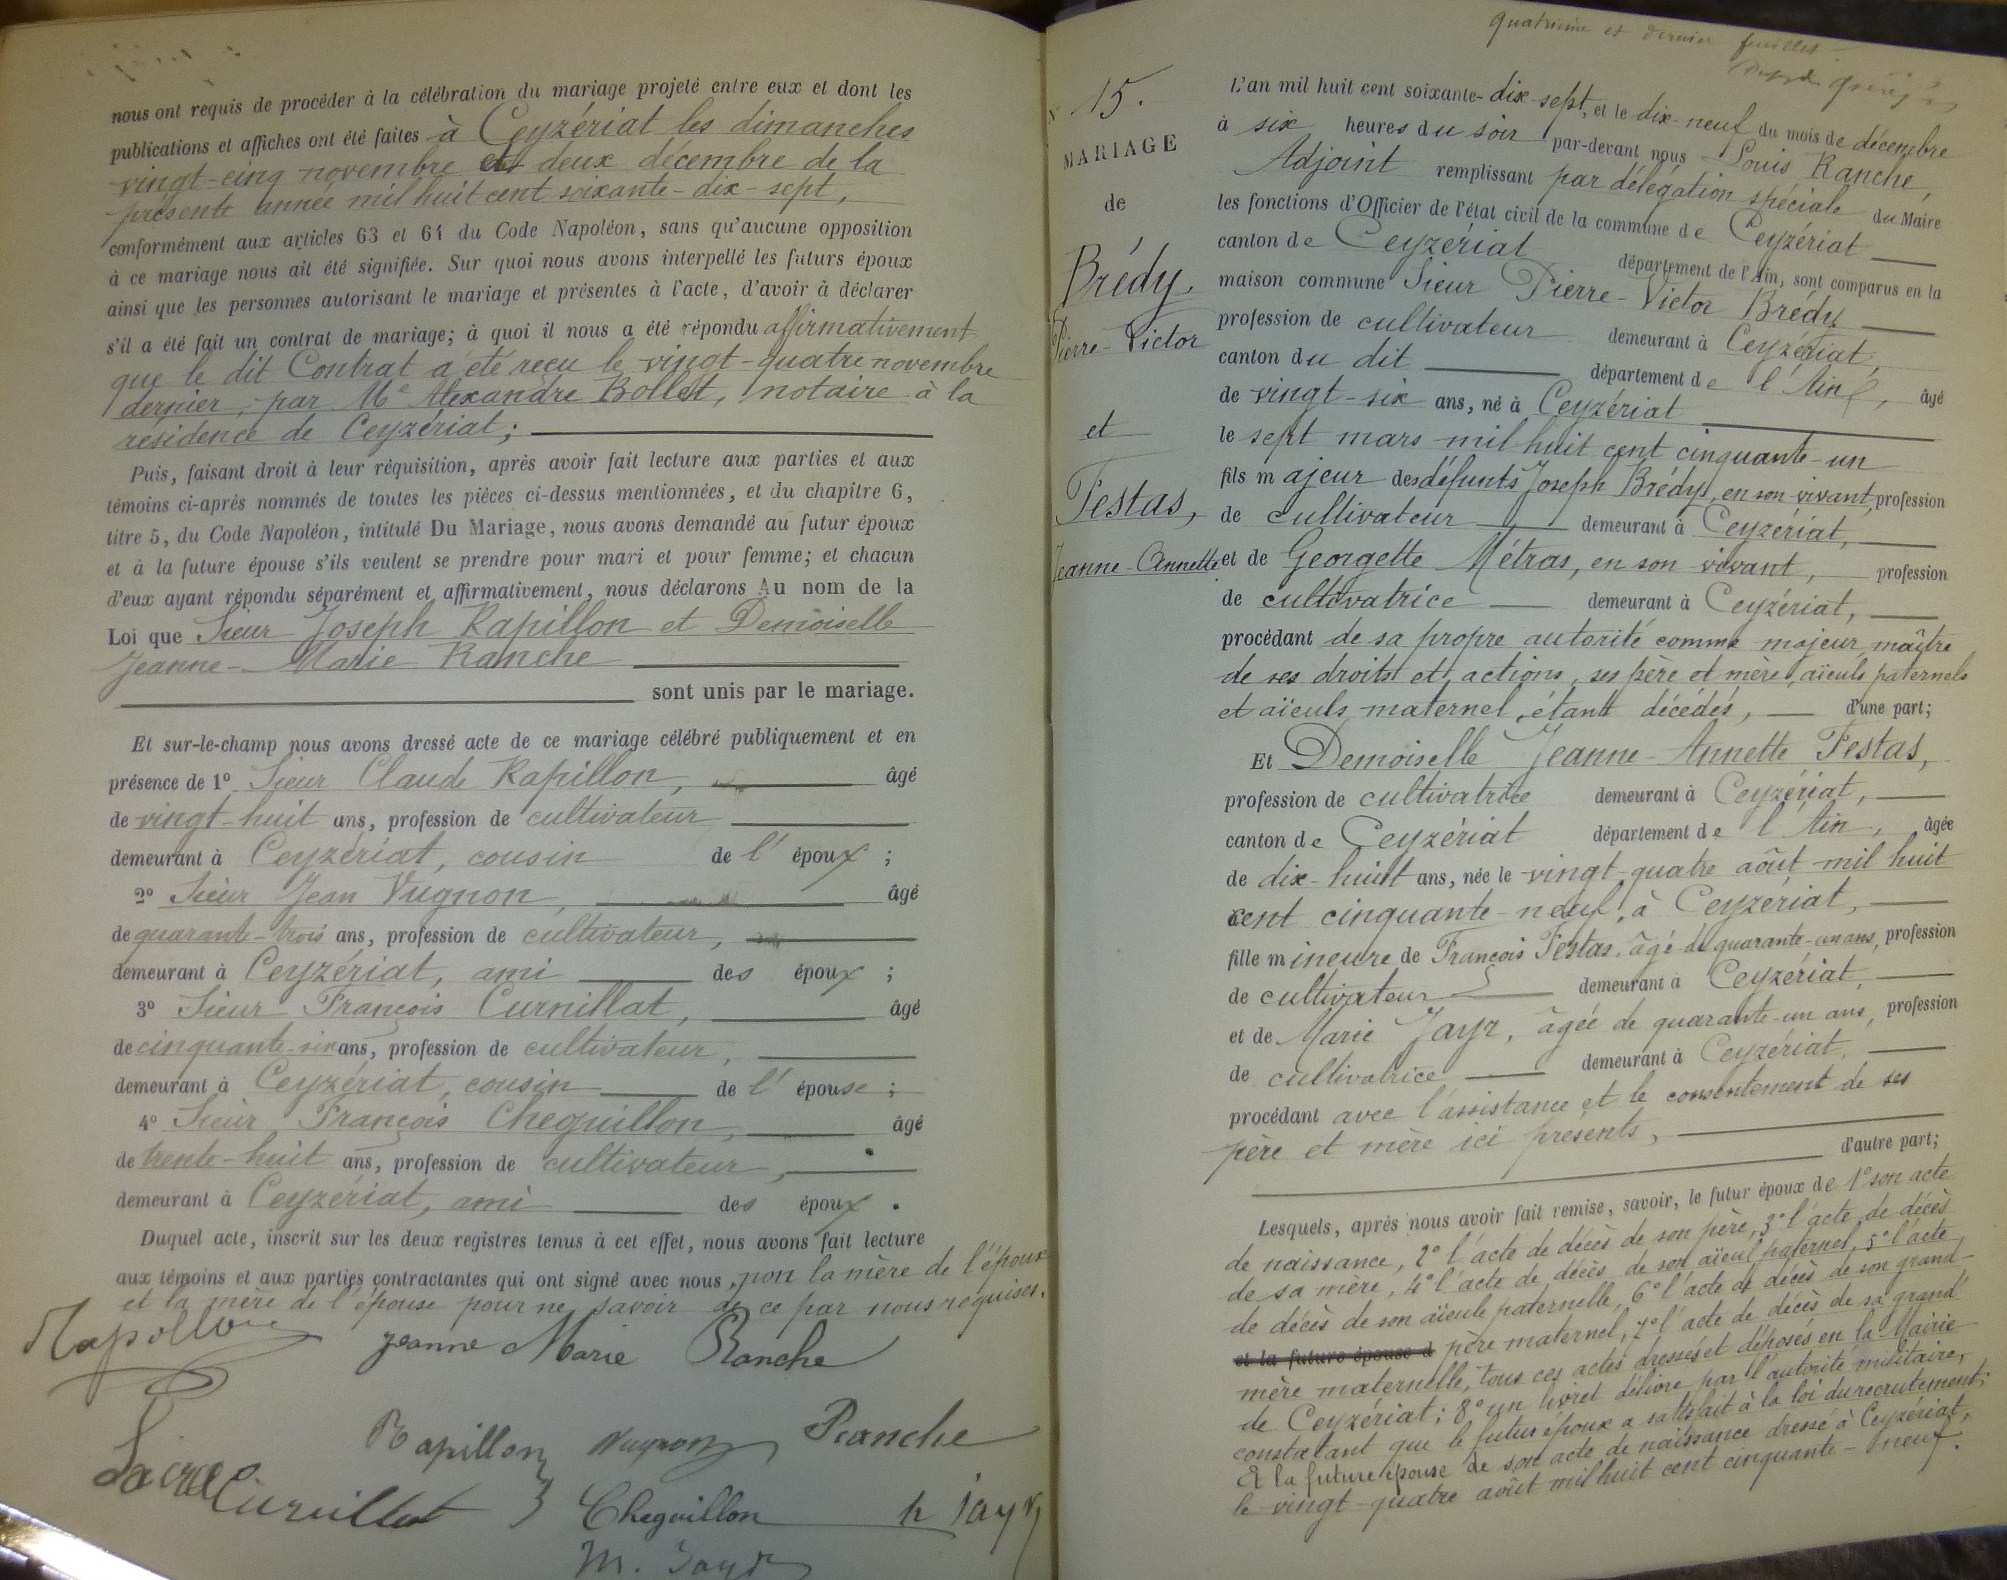 nous ont requis de procéder à la célébration du mariage projeté entre eux et dont les
publications et affiches ont été faites à Ceyzériat les dimanches
vingt-cinq novembre et deux décembre de la
présente année mil huit cent soixante-dix-sept,
conformément aux articles 63 et 64 du Code Napoléon, sans qu'aucune opposition
à ce mariage nous ait été signifiée. Sur quoi nous avons interpellé les futurs époux
ainsi que les personnes autorisant le mariage et présentes à l'acte, d'avoir à déclarer
s'il a été fait un contrat de mariage; à quoi il nous a été répondu affirmativement
que le dit Contrat a été reçu le vingt-quatre novembre
dernier, par Me Alexandre Bollet, notaire à la
résidence de Ceyzériat;
Puis, faisant droit à leur réquisition, après avoir fait lecture aux parties et aux
témoins ci-après nommés de toutes les pièces ci-dessus mentionnées, et du chapitre 6,
titre 5, du Code Napoléon, intitulé Du Mariage, nous avons demandé au futur époux
et à la future épouse s'ils veulent se prendre pour mari et pour femme; et chacun
d'eux ayant répondu séparément et affirmativement, nous déclarons Au nom de la
Loi que Sieur Joseph Rapillon et Demoiselle
Jeanne-Marie Ranche
sont unis par le mariage.
Et sur-le-champ nous avons dressé acte de ce mariage célébré publiquement et en
présence de 1º Sieur Claude Rapillon, âgé
de vingt-huit ans, profession de cultivateur
demeurant à Ceyzériat, cousin de l'époux;
2º Sieur Jean Vugnon, âgé
de quarante-trois ans, profession de cultivateur,
demeurant à Ceyzériat, ami des époux;
3º Sieur François Curnillat, âgé
de cinquante-six ans, profession de cultivateur,
demeurant à Ceyzériat, cousin de l'épouse;
4º Sieur François Cheguillon, âgé
de trente-huit ans, profession de cultivateur,
demeurant à Ceyzériat, ami des époux.
Duquel acte, inscrit sur les deux registres tenus à cet effet, nous avons fait lecture
aux témoins et aux parties contractantes qui ont signé avec nous, non la mère de l'époux
et la mère de l'épouse pour ne savoir de ce par nous requises.
Rapillon Jeanne Marie Ranche
Rapillon Vugnon Ranche
Curnillat Cheguillon h Jayr
M. Jayr
Quatrième et dernier feuillet
15.
MARIAGE
de
Brédy,
Pierre-Victor
et
Festas,
Jeanne-Annette
L'an mil huit cent soixante-dix-sept, et le dix-neuf du mois de décembre
à six heures du soir par-devant nous Louis Ranche,
Adjoint remplissant par délégation spéciale du Maire
les fonctions d'Officier de l'état civil de la commune de Ceyzériat
canton de Ceyzériat département de l'Ain, sont comparus en la
maison commune Sieur Pierre-Victor Brédy
profession de cultivateur demeurant à Ceyzériat,
canton du dit département de l'Ain, âgé
de vingt-six ans, né à Ceyzériat
le sept mars mil huit cent cinquante-un
fils majeur des défunts Joseph Brédy, en son vivant, profession
de cultivateur demeurant à Ceyzériat,
et de Georgette Métras, en son vivant, profession
de cultivatrice demeurant à Ceyzériat,
procédant de sa propre autorité comme majeur maître
de ses droits et actions, ses père et mère, aïeuls paternels
et aïeuls maternel, étant décédés, d'une part;
Et Demoiselle Jeanne-Annette Festas,
profession de cultivatrice demeurant à Ceyzériat,
canton de Ceyzériat département de l'Ain, âgée
de dix-huit ans, née le vingt-quatre août mil huit
cent cinquante-neuf, à Ceyzériat,
fille mineure de François Festas, âgé de quarante-un ans, profession
de cultivateur demeurant à Ceyzériat,
et de Marie Jayr, âgée de quarante-un ans, profession
de cultivatrice demeurant à Ceyzériat,
procédant avec l'assistance et le consentement de ses
père et mère ici présents,
d'autre part;
Lesquels, après nous avoir fait remise, savoir, le futur époux de 1º son acte
de naissance, 2º l'acte de décès de son père, 3º l'acte de décès
de sa mère, 4º l'acte de décès de son aïeul paternel, 5º l'acte
de décès de son aïeule paternelle, 6º l'acte de décès de son grand-
et la future épouse d père maternel, 7º l'acte de décès de sa grand'
mère maternelle, tous ces actes dressés et déposés en la Mairie
de Ceyzériat; 8º un livret délivré par l'autorité militaire,
constatant que le futur époux a satisfait à la loi du recrutement;
Et la future épouse de son acte de naissance dressé à Ceyzériat,
le vingt-quatre août mil huit cent cinquante-neuf.